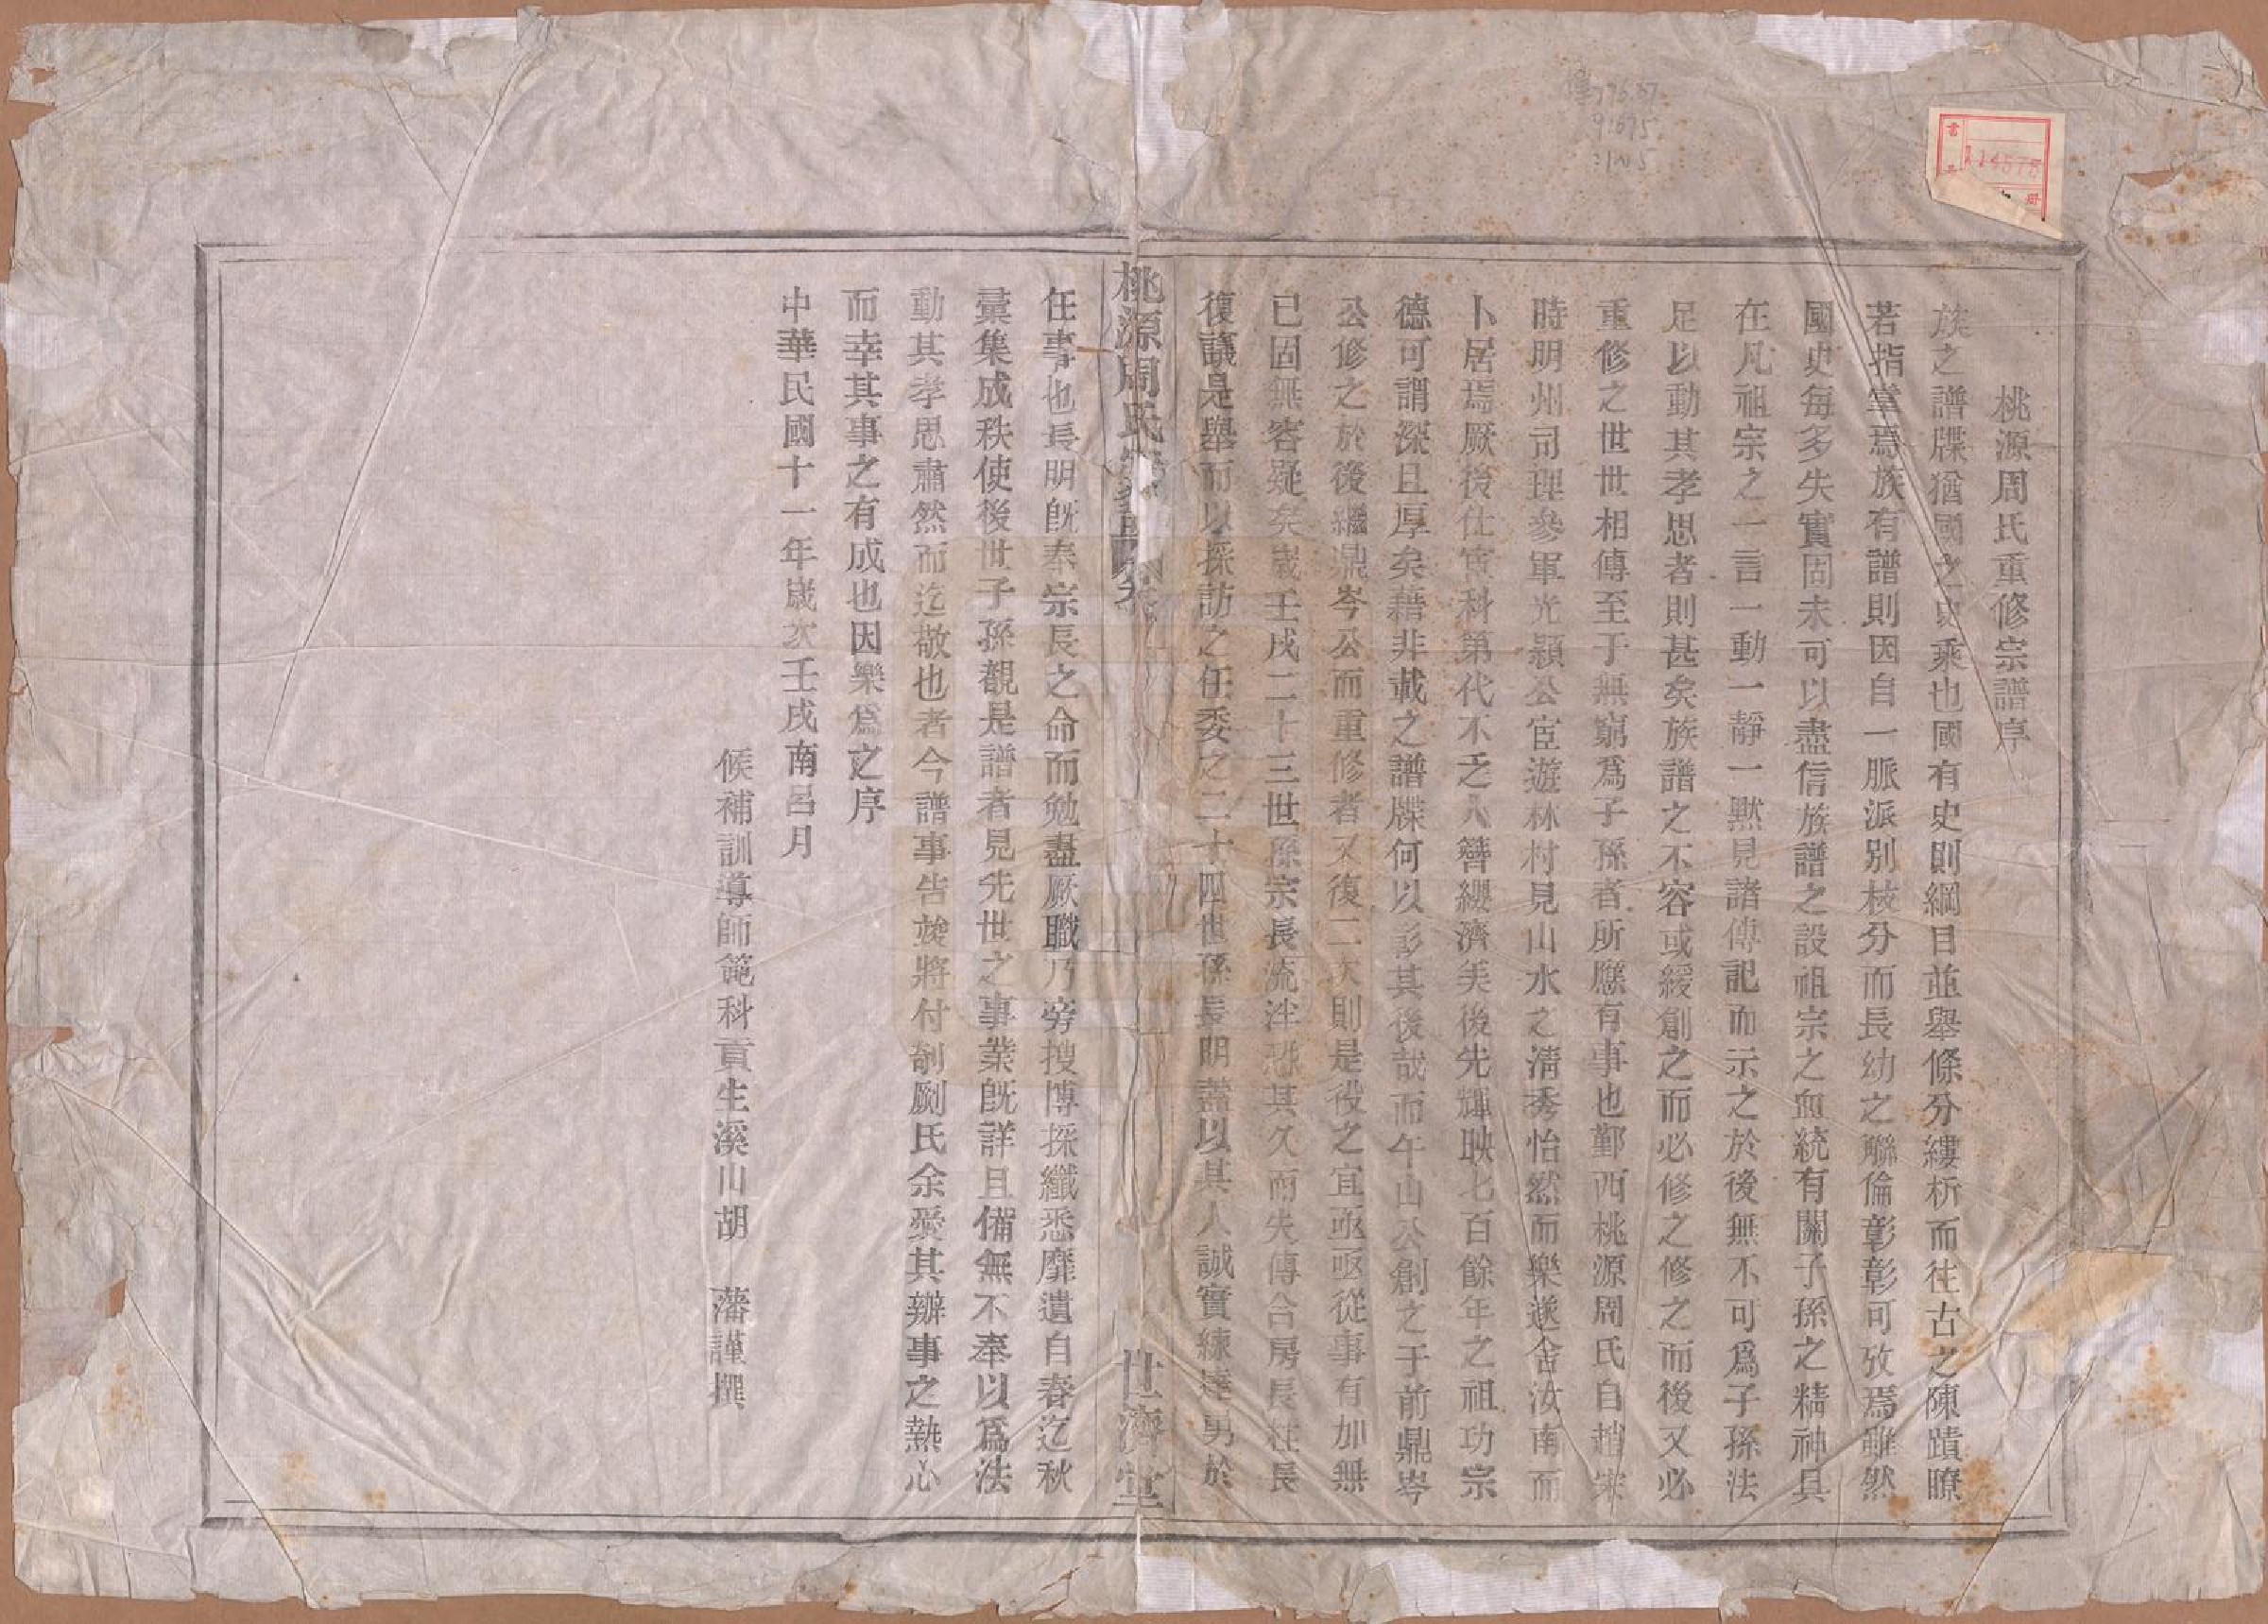 桃源周氏重修宗譜序
族之譜牒猶國之史乘也國有史則綱目並舉條分縷析而往古之陳蹟瞭
若指掌焉族有譜則因自一脈派別枝分而長幼之聯倫彰彰可攷焉雖然
國史每多失實固未可以盡信族譜之設祖宗之血統有關子孫之精神具
在凡祖宗之一言一動一靜一默見諸傳記而示之於後無不可爲子孫法
足以動其孝思者則甚矣族譜之不容或緩創之而必修之修之而後又必
重修之世世相傳至于無窮爲子孫者所應有事也鄞西桃源周氏自趙宋
時明州司理參軍光顥公宦遊林村見山水之清秀怡然而樂遂舍汝南而
卜居焉厥後仕宦科第代不乏人簪纓濟美後先輝映七百餘年之祖功宗
德可謂深且厚矣藉非載之譜牒何以彰其後哉而午山公創之于前鼎岑
公修之於後繼鼎岑公而重修者又復二次則是役之宜亟亟從事有加無
已固無容疑矣歲壬戌二十三世孫宗長流泮恐其久而失傳合房長柱長
復議是舉而以採訪之任委之二十四世孫長明蓋以其人誠實練達勇於
桃源周氏宗譜 卷
世濟堂
任事也長明既奉宗長之命而勉盡厥職乃旁搜博採纖悉靡遺自春迄秋
彙集成秩使後世子孫覩是譜者見先世之事業既詳且備無不奉以爲法
動其孝思肅然而迄敬也者今譜事告竣將付剞劂氏余爰其辦事之熱心
而幸其事之有成也因樂爲之序
中華民國十一年歲次壬戌南呂月
候補訓導師範科貢生溪山胡 藩謹撰